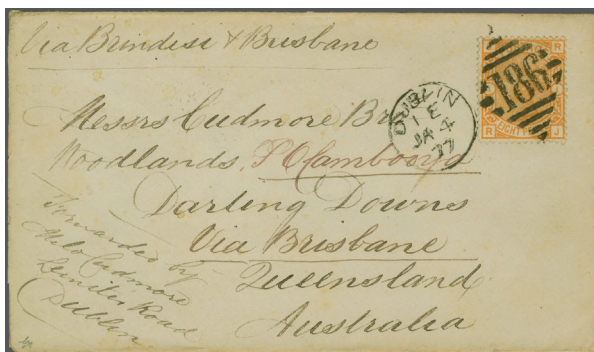 Via Brindisi & Brisbane
R R
186
EIGHT
R J
DUBLIN
1 E
JA 4
77
Messrs Cudmore Br
Woodlands, P.O. Cambooya
Darling Downs
Via Brisbane
Queensland
Australia
Forwarded by
Milo Cudmore
Road
Dublin